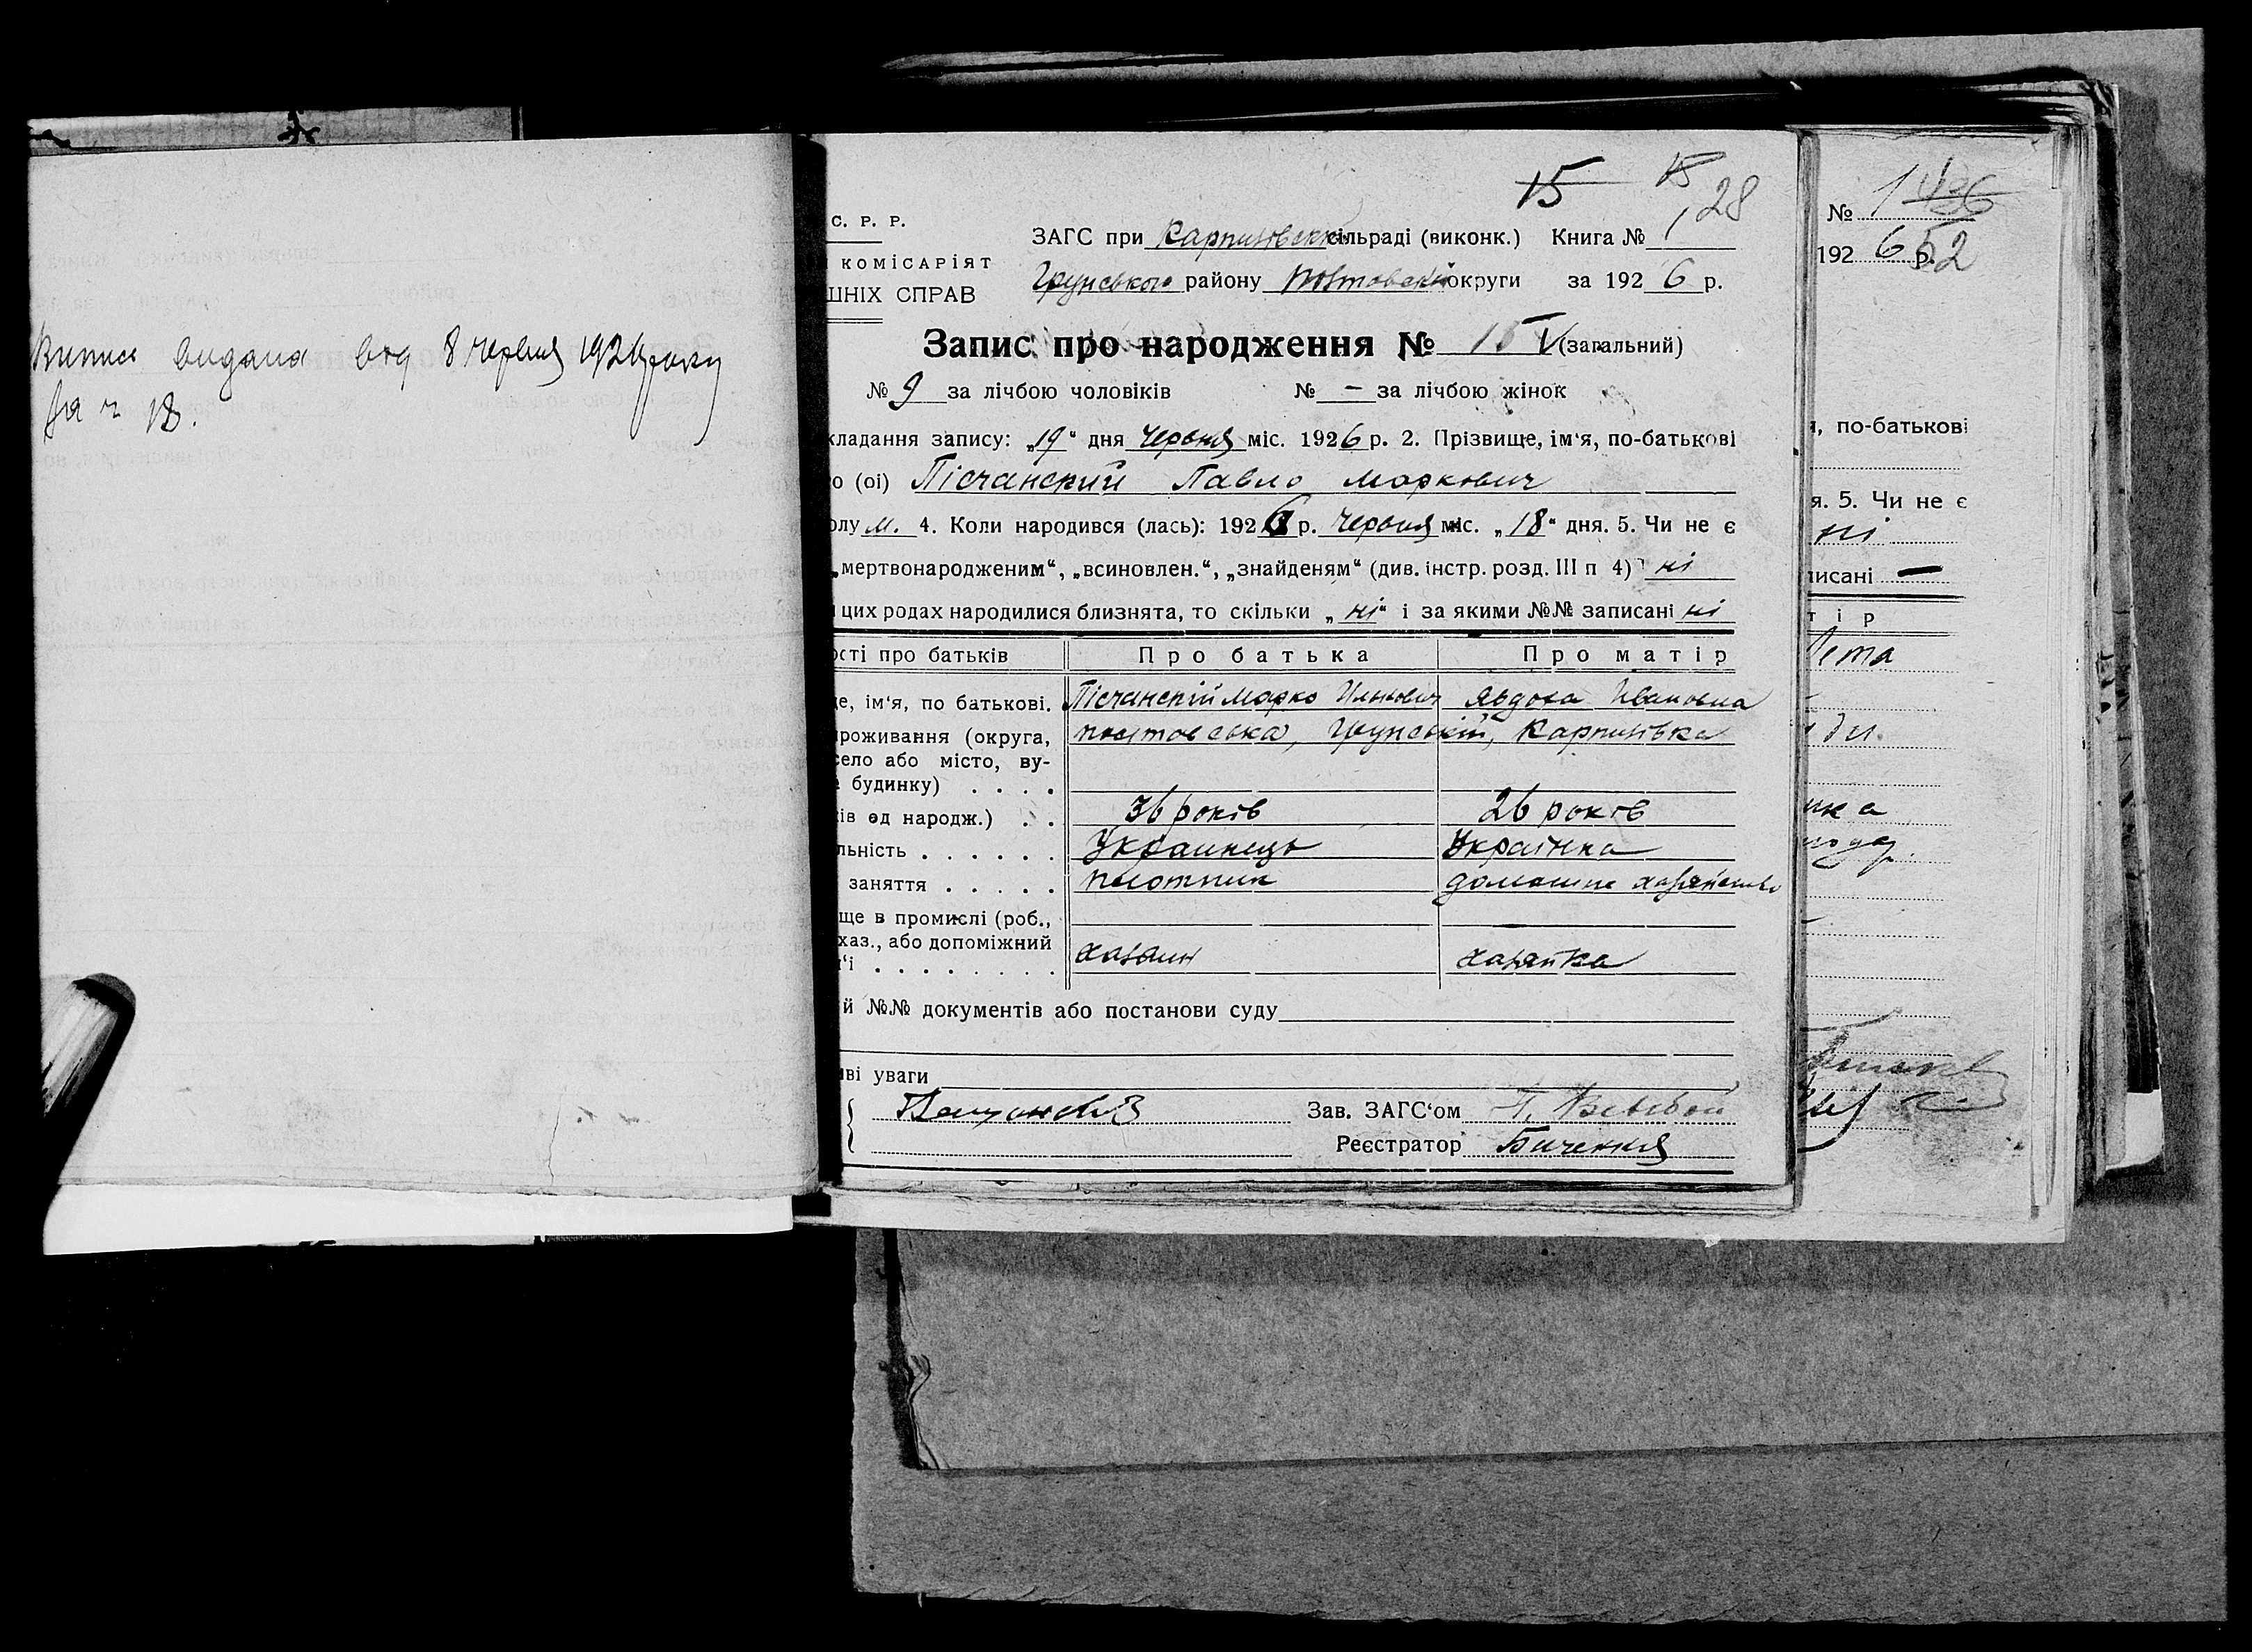 Випис видана від 8 червня 192 року
за ч 18.
15 15
28
С. Р. Р.
ЗАГС при Карпилівській сільраді (виконк.) Книга № 1
КОМІСАРІЯТ
ШНІХ СПРАВ
Грунського району Полтавської округи за 1926 р.
Запис про народження № 15 (загальний)
№ 9 за лічбою чоловіків № — за лічбою жінок
кладання запису: „19“ дня Червня міс. 1926 р. 2. Прізвище, ім‘я, по-батькові
го (ої) Пісчанский Павло Маркович
олу м. 4. Коли народився (лась): 1926 р. Червня міс. „18“ дня. 5. Чи не є
„мертвонародженим“, „всиновлен.“, „знайденям“ (див. інстр. розд. III п 4) ні
цих родах народилися близнята, то скільки „ні“ і за якими №№ записані ні
ості про батьків Про батька Про матір
е, ім‘я, по батькові. Пісчанский Марко Ильович Явдоха Ивановна
роживання (округа, Полтовська, Грунський, Карпилівка
село або місто, ву-
будинку) . . . .
ків од народж.) . . 36 років 26 років
льність . . . . . . Украинець Українка
заняття . . . . . плотник домашне хазяйство
ще в промислі (роб.,
хаз., або допоміжний
‘ї . . . . . . . . хазаин хазяйка
й №№ документів або постанови суду
ві уваги
Зав. ЗАГС‘ом
Реєстратор Биченко
№ 1
52
1926 р.
, по-батькові
я. 5. Чи не є
ні
писані —
т і р